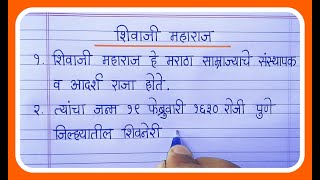 शिवाजी महाराज
१. शिवाजी महाराज हे मराठा साम्राज्याचे संस्थापक
व आदर्श राजा होते.
२. त्यांचा जन्म १९ फेब्रुवारी १६३० रोजी पुणे
जिल्ह्यातील शिवनेरी